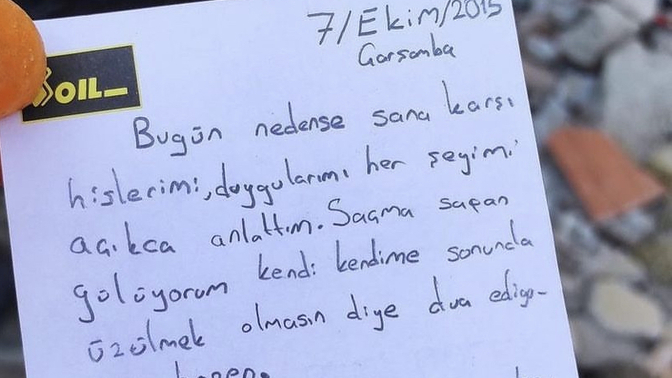 7/Ekim/2015
Çarşamba
OIL_
Bugün nedense sana karşı
hislerimi, duygularımı her şeyimi
açıkca anlattım. Saçma sapan
gülüyorum kendi kendime sonunda
üzülmek olmasın diye dua ediyo-